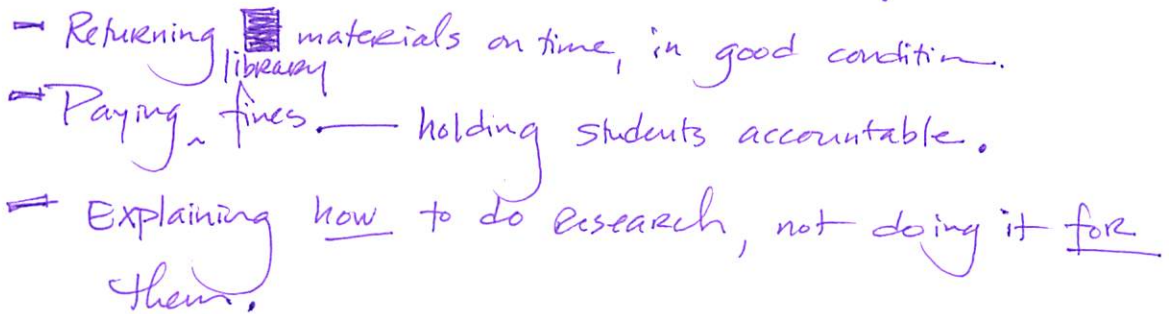 - Returning materials on time, in good condition.
- Paying library fines. — holding students accountable.
- Explaining how to do research, not doing it for
them.